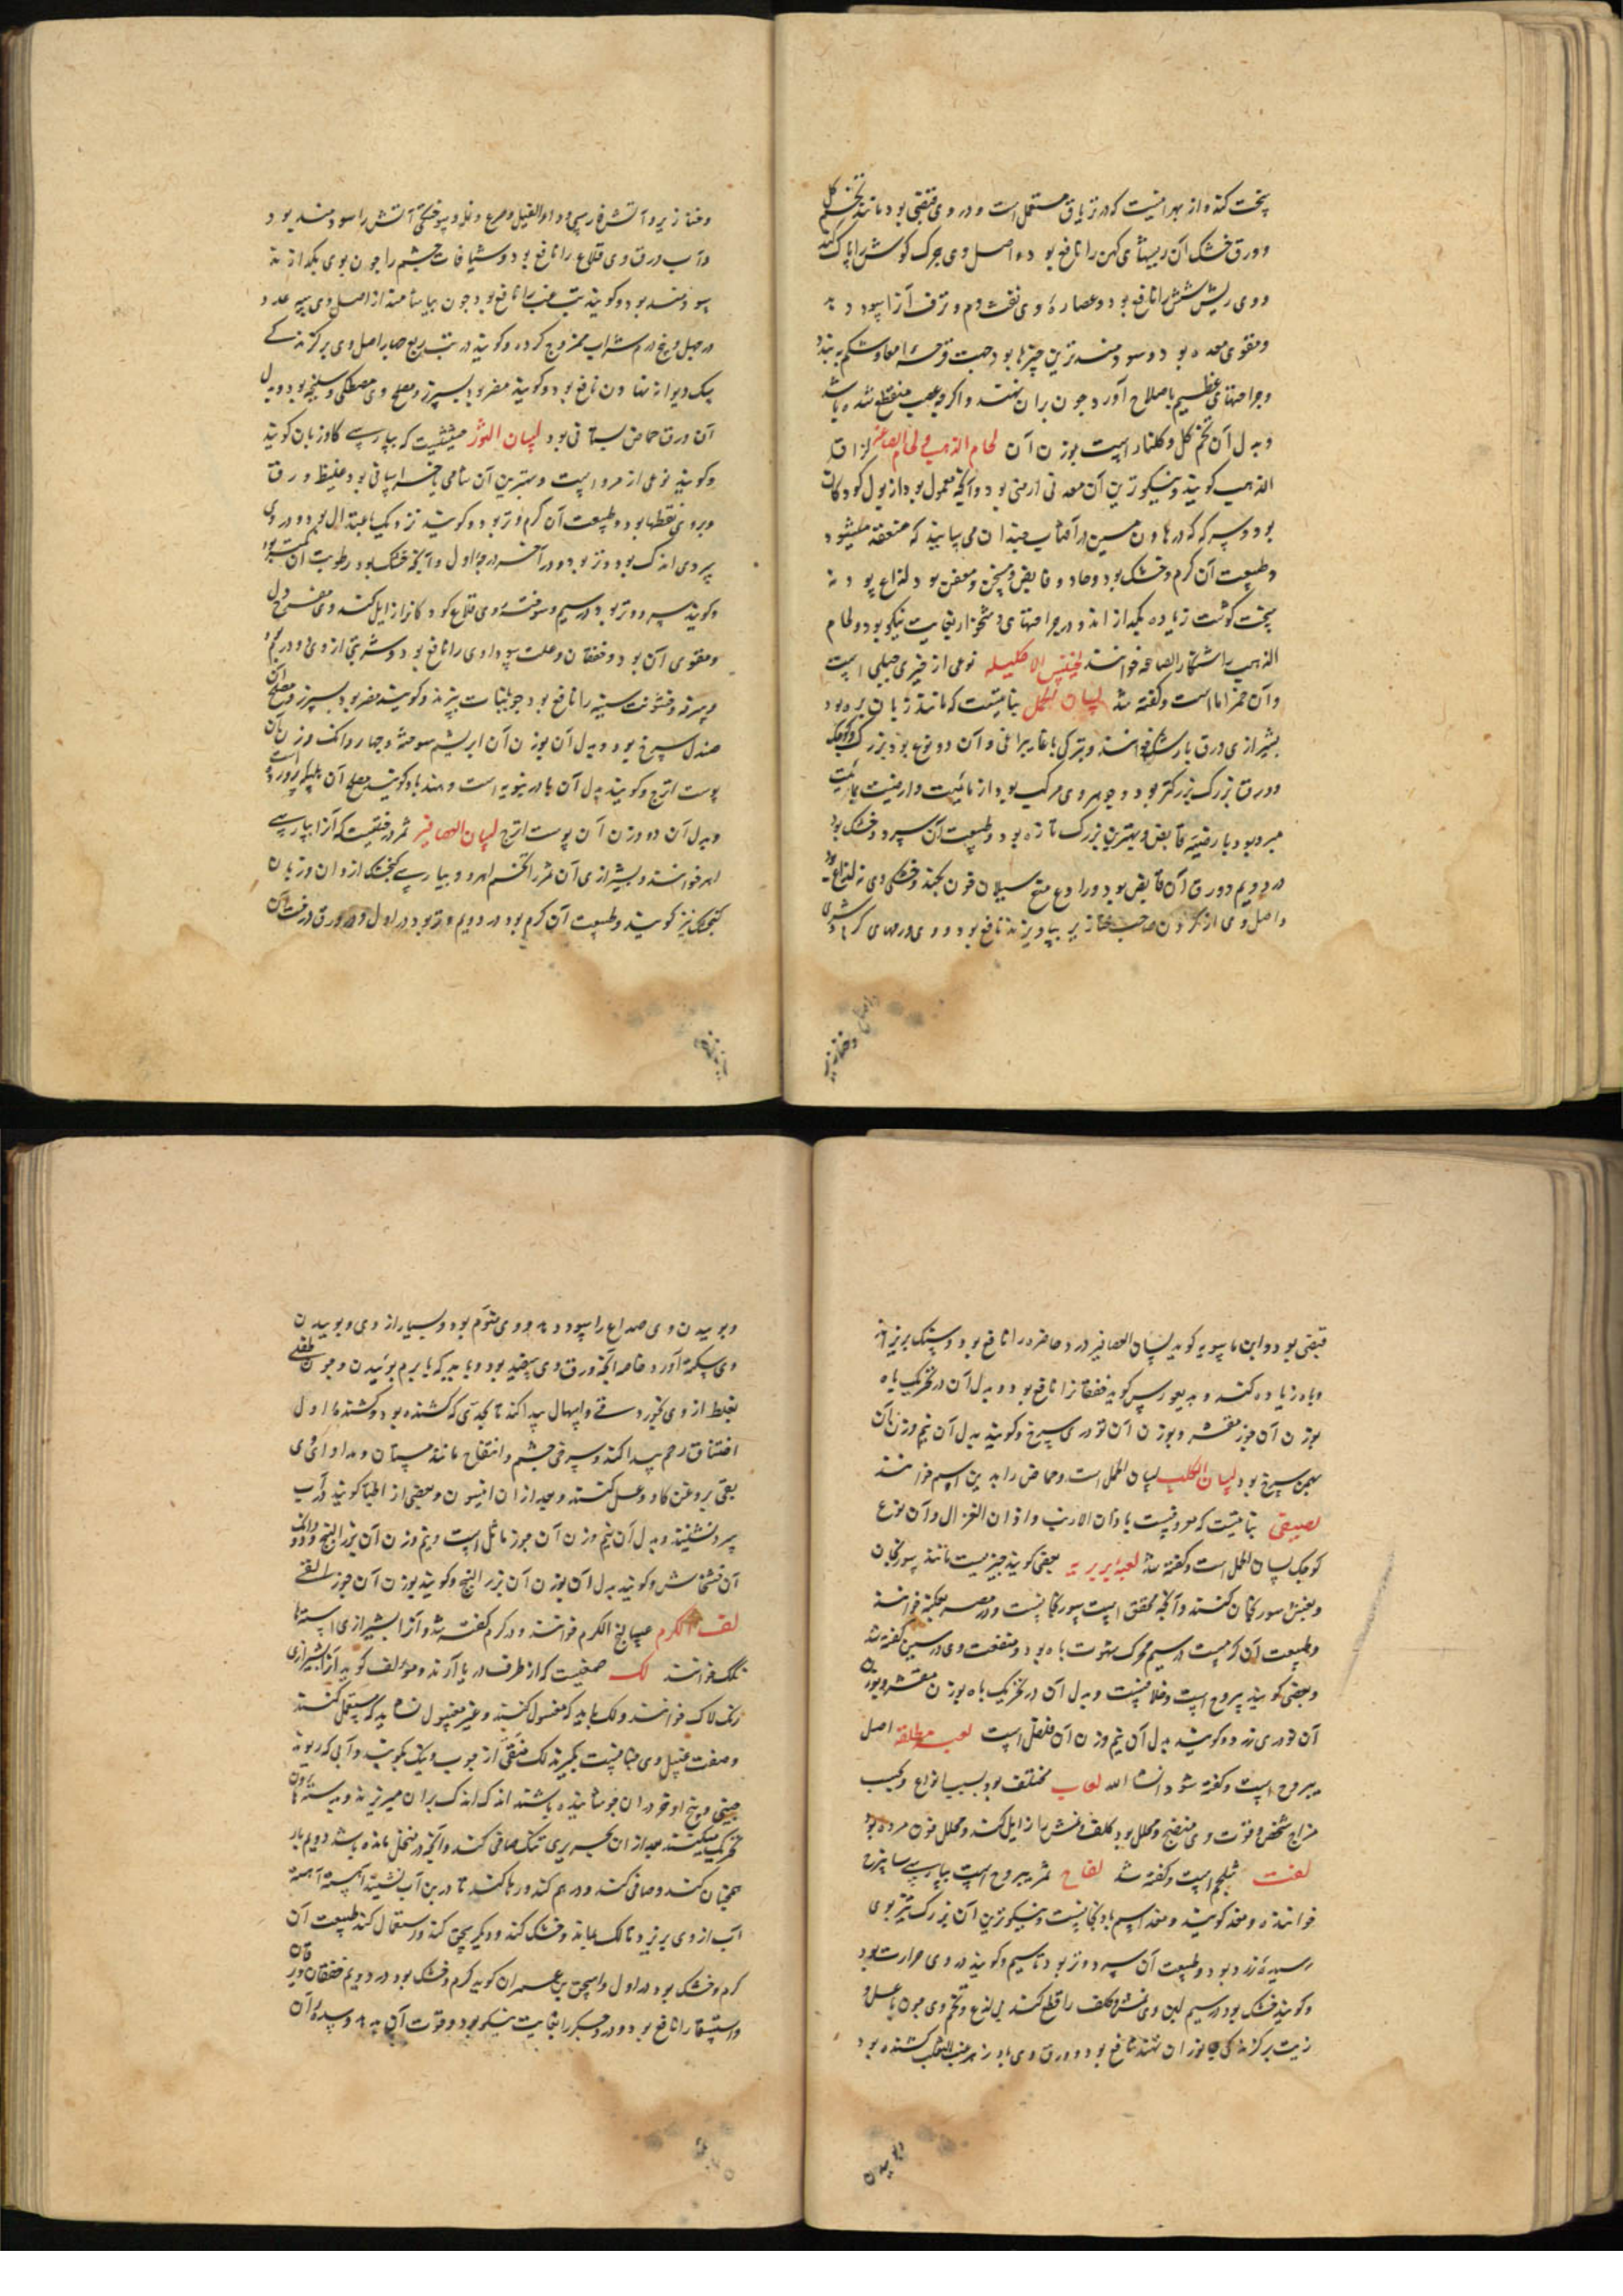 پخت کند و از بهر انیست که در تریاق مستعمل است و در وی قبضی بود مانند تخم گل
و ورق خشک آن ریشهای کهن را نافع بود و اصل وی چرک گوش را پاک کند
و وی ریش شش را نافع بود و عصاره وی نفث دم و نزف آنرا سود دهد
و مقوی معده بود و سودمندترین چیزها بود جهت قرحه امعا و شکم به بندد
و جراحتهای عظیم باصلاح آورد چون بران نهند و اگرچه عصب منقطع شده باشد
و بدل آن تخم گل و گلنار است بوزن آن لحام الذهب و لحام الصاغه لزاق
الذهب گویند و نیکوترین آن معدنی ارمنی بود و آنچه معمول بود از بول کودکان
بود و سرکه که در هاون مسین در آفتاب چندان می سایند که منعقد میشود
و طبیعت آن گرم و خشک بود و حاد و قابض و مسخن و معفن بود و لذاع بود نه
سخت گوشت زیاده بگدازاند و در جراحتهای دشخوار بغایت نیکو بود و لحام
الذهب را شنکار الصاغه خوانند لخینس الاکلیله نوعی از خیری جبلی است
و آن خزاما است و گفته شد لسان الحمل نباتیست که مانند زبان بره بود
بشیرازی ورق بارتنگ خوانند و بترکی باغا یپراغی و آن دو نوع بود بزرگ و کوچک
و ورق بزرگ بزرگتر بود و جوهر وی مرکب بود از مائیت و ارضیت بمائیت
مبرد بود بارضیه قابض و بهترین بزرگ تازه بود و طبیعت آن سرد و خشک بود
در دویم و ورق آن قابض بود و رادع منع سیلان خون بکند و خشکی وی نه لذاع بود
و اصل وی از گردن صاحب خنازیر بیاویزند نافع بود و وی ورمهای گرم و شری
و خنازیر و آتش فارسی و داء الفیل و صرع و نمله و سوختگی آتش را سودمند بود
و آب ورق وی قلاع را نافع بود و شیافات چشم را چون بوی بگدازند
سودمند بود و گویند تب غب را نافع بود چون بیاشامند از اصل وی سه عدد
در چهل و پنج درم شراب ممزوج کرده و گویند در تب ربع چهار اصل وی بر گزندگی
سگ دیوانه نهادن نافع بود و گویند مضر بود بسپرز و مصلح وی مصطکی و سلیخه بود و بدل
آن ورق حماض بستانی بود لسان الثور حشیشیست که بپارسی گاوزبان گویند
و گویند نوعی از مرو است و بهترین آن شامی یا خراسانی بود غلیظ ورق
و بروی نقطها بود و طبیعت آن گرم و تر بود و گویند نزدیک باعتدال بود و در وی
سردی اندک بود و تر بود در آخر درجه اول و آنچه خشک بود رطوبت آن کمتر بود
و گویند سرد و تر بود در سیم و سوخته وی قلاع کودکانرا زایل کند وی مفرح دل
و مقوی آن بود و خفقان و علت سوداوی را نافع بود و شربتی از وی دو درم بود
و سرفه و خشونت سینه را نافع بود چون با نبات بپزند و گویند مضر بود بسپرز و مصلح آن
صندل سرخ بود و بدل آن بوزن آن ابریشم سوخته و چهار دانک وزن آن
پوست اترج و گویند بدل آن بادرنبویه است و هند باد گویند مصلح آن هلیله پرورده است
و بدل آن دو وزن آن پوست اترج لسان العصافیر ثمر درختیست که آنرا بپارسی
اهر خوانند و بشیرازی آن ثمر را تخم اهر و بپارسی کنجشک ازوان و زبان
کنجشک نیز گویند و طبیعت آن گرم بود در دویم و تر بود در اول و در ورق درخت آن
قبضی بود و ابن ماسویه گوید لسان العصافیر درد خاصره را نافع بود و سنگ بریزاند
و باه زیاده کند و دیسقوریدس گوید خفقانرا نافع بود و بدل آن در تحریک باه
بوزن آن جوز مقشر و بوزن آن تودری سرخ و گویند بدل آن نیم وزن آن
بهمن سرخ بود لسان الکلب لسان الحمل است و حماض را بدین اسم خوانند
لصیقی نباتیست که معروفست باذان الارنب و اذان الغزال و آن نوع
کوچک لسان الحمل است و گفته شد لعبه بربریه بعضی گویند چیزیست مانند سورنجان
و بغش سورنجان کنند و آنچه محقق است سورنجانست و در مصر عکنه خوانند
و طبیعت آن گرمست در سیم محرک شهوت باه بود و منفعت وی در سین گفته شد
و بعضی گویند یبروح است و خلافیست و بدل آن در تحریک باه بوزن مقشر و بوزن
آن تودری زرد و گویند بدل آن نیم وزن آن فلفل است لعبه مطلقه اصل
یبروح است و گفته شود انشاء الله لعاب مختلف بود بسبب انواع و بحسب
مزاج شخص و قوت وی منضج و محلل بود کلف و نمش را زایل کند و محلل خون مرده بود
لفت شلجم است و گفته شد لفاح ثمر یبروح است بپارسی سابیزج
خوانند و مغد گویند و مغد اسم بادنجانست و نیکوترین آن بزرگ تیزبوی
رسیده زرد بود و طبیعت آن سرد و تر بود تا سیم و گویند در وی حرارت بود
و گویند خشک بود در سیم لبن وی نمش و کلف را قطع کند بی لذع و تخم وی چون با عسل و
زیت بر گزندگی جانوران نهند نافع بود و ورق وی پادزهر عنب الثعلب کشنده بود
و بوییدن وی صداع را سود دهد و وی منوم بود و بسیار از وی و بوییدن
وی سکته آورد خاصه آنچه ورق وی سفید بود و باید که با برم بوئیدن و چون طفلی
بغلط از وی بخورد قی و اسهال پیدا کند تا بحدی که کشنده بود و کشنده اول
اختناق رحم پیدا کند و سرخی چشم و انتفاخ مانند مستان و مداوای وی
بقی بروغن گاو و عسل کنند و بعد از ان انیسون و بعضی از اطبا گویند در آب
سرد نشینند و بدل آن نیم وزن آن جوز ماثل است و نیم وزن آن بزر البنج و دو دانک
آن خشخاش و گویند بدل آن بوزن آن بزر البنج و گویند بوزن آن جوز القی
لفت الکرم عسالیج الکرم خوانند و در کرم گفته شد و آنرا بشیرازی استه
تکک خوانند لک صمغیست که از طرف دریا آرند و مؤلف گوید آنرا بشیرازی
رنک لاک خوانند و لک باید که مغسول کنند و غیر مغسول نشاید که مستعمل کنند
و صفت غسل وی چنانست بگیرند لک منقی از چوب و نیک بکوبند و آبی که ریوند
چینی و بیخ اذخر در ان جوشانیده باشند اندک اندک بر ان میریزند و بدسته هاون
تحریک میکنند بعد از ان بحریری تنک صافی کنند و آنچه در منخل مانده باشد دویم بار
همچنان کنند و صافی کنند و در هم کنند و رها کنند تا در بن آب نشیند آهسته آهسته
آب از وی بریزد تا لک بماند و خشک کند و دیگر سحق کند و استعمال کند طبیعت آن
گرم و خشک بود در اول و اسحق بن عمران گوید گرم و خشک بود در دویم خفقان و یرقان
و استسقا را نافع بود و درد جگر را بغایت نیکو بود و قوت آن بدهد و سده آن